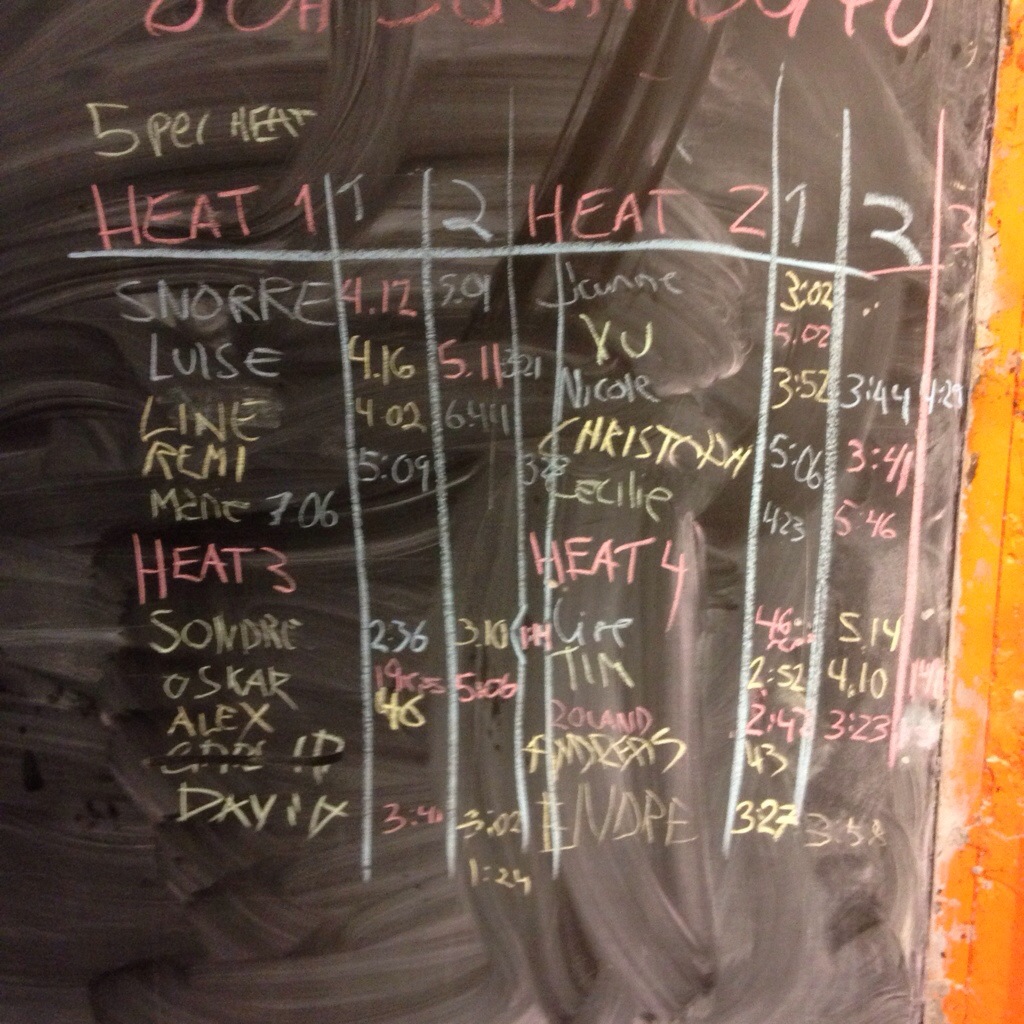 5 per HEAT
HEAT 1 1 2 HEAT 2 1 2 3
SNORRE 4.12 5.01 Jeanne 3:02
YU 5.02
LUISE 4.16 5.11 3:21 Nicole 3:52 3:44 4:29
LINE 4.02 6:41 CHRISTOPH 5:06 3:41
REMI 5:09 Cecilie 423 5:46
Marie 7:06
HEAT 3 HEAT 4
SONDRE 2:36 3.10 Line 46 5.14
OSKAR 5:06 TIM 2:52 4.10
ALEX 46 ROLAND 2:47 3:23
ANDREAS 43
DAVID 3:41 3:02 ENDRE 3:27 3:58
1:24